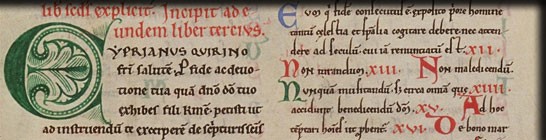 lib scđi explicit. Incipit ad e
undem liber tercius.
CYPRIANUS QUIRINO
frī salutē. P fide ac deuo
tione tua quā dn̄o dō tuo
exhibes fili kmē petisti ut
ad instruendū te excerperē de scpturis scīs
Eum q fide consecutus ē exposito pore homine
celestia et spalia cogitare debere nec atten
dere ad seculū cui iā renunciauit. XII.
Non iurandum. XIII. Non maledicendū.
Nunquā mussitandū sz circa omīa quę XIIII.
accidunt benedicendū dm̄. XV. Ad hoc
XVI. O bono mar